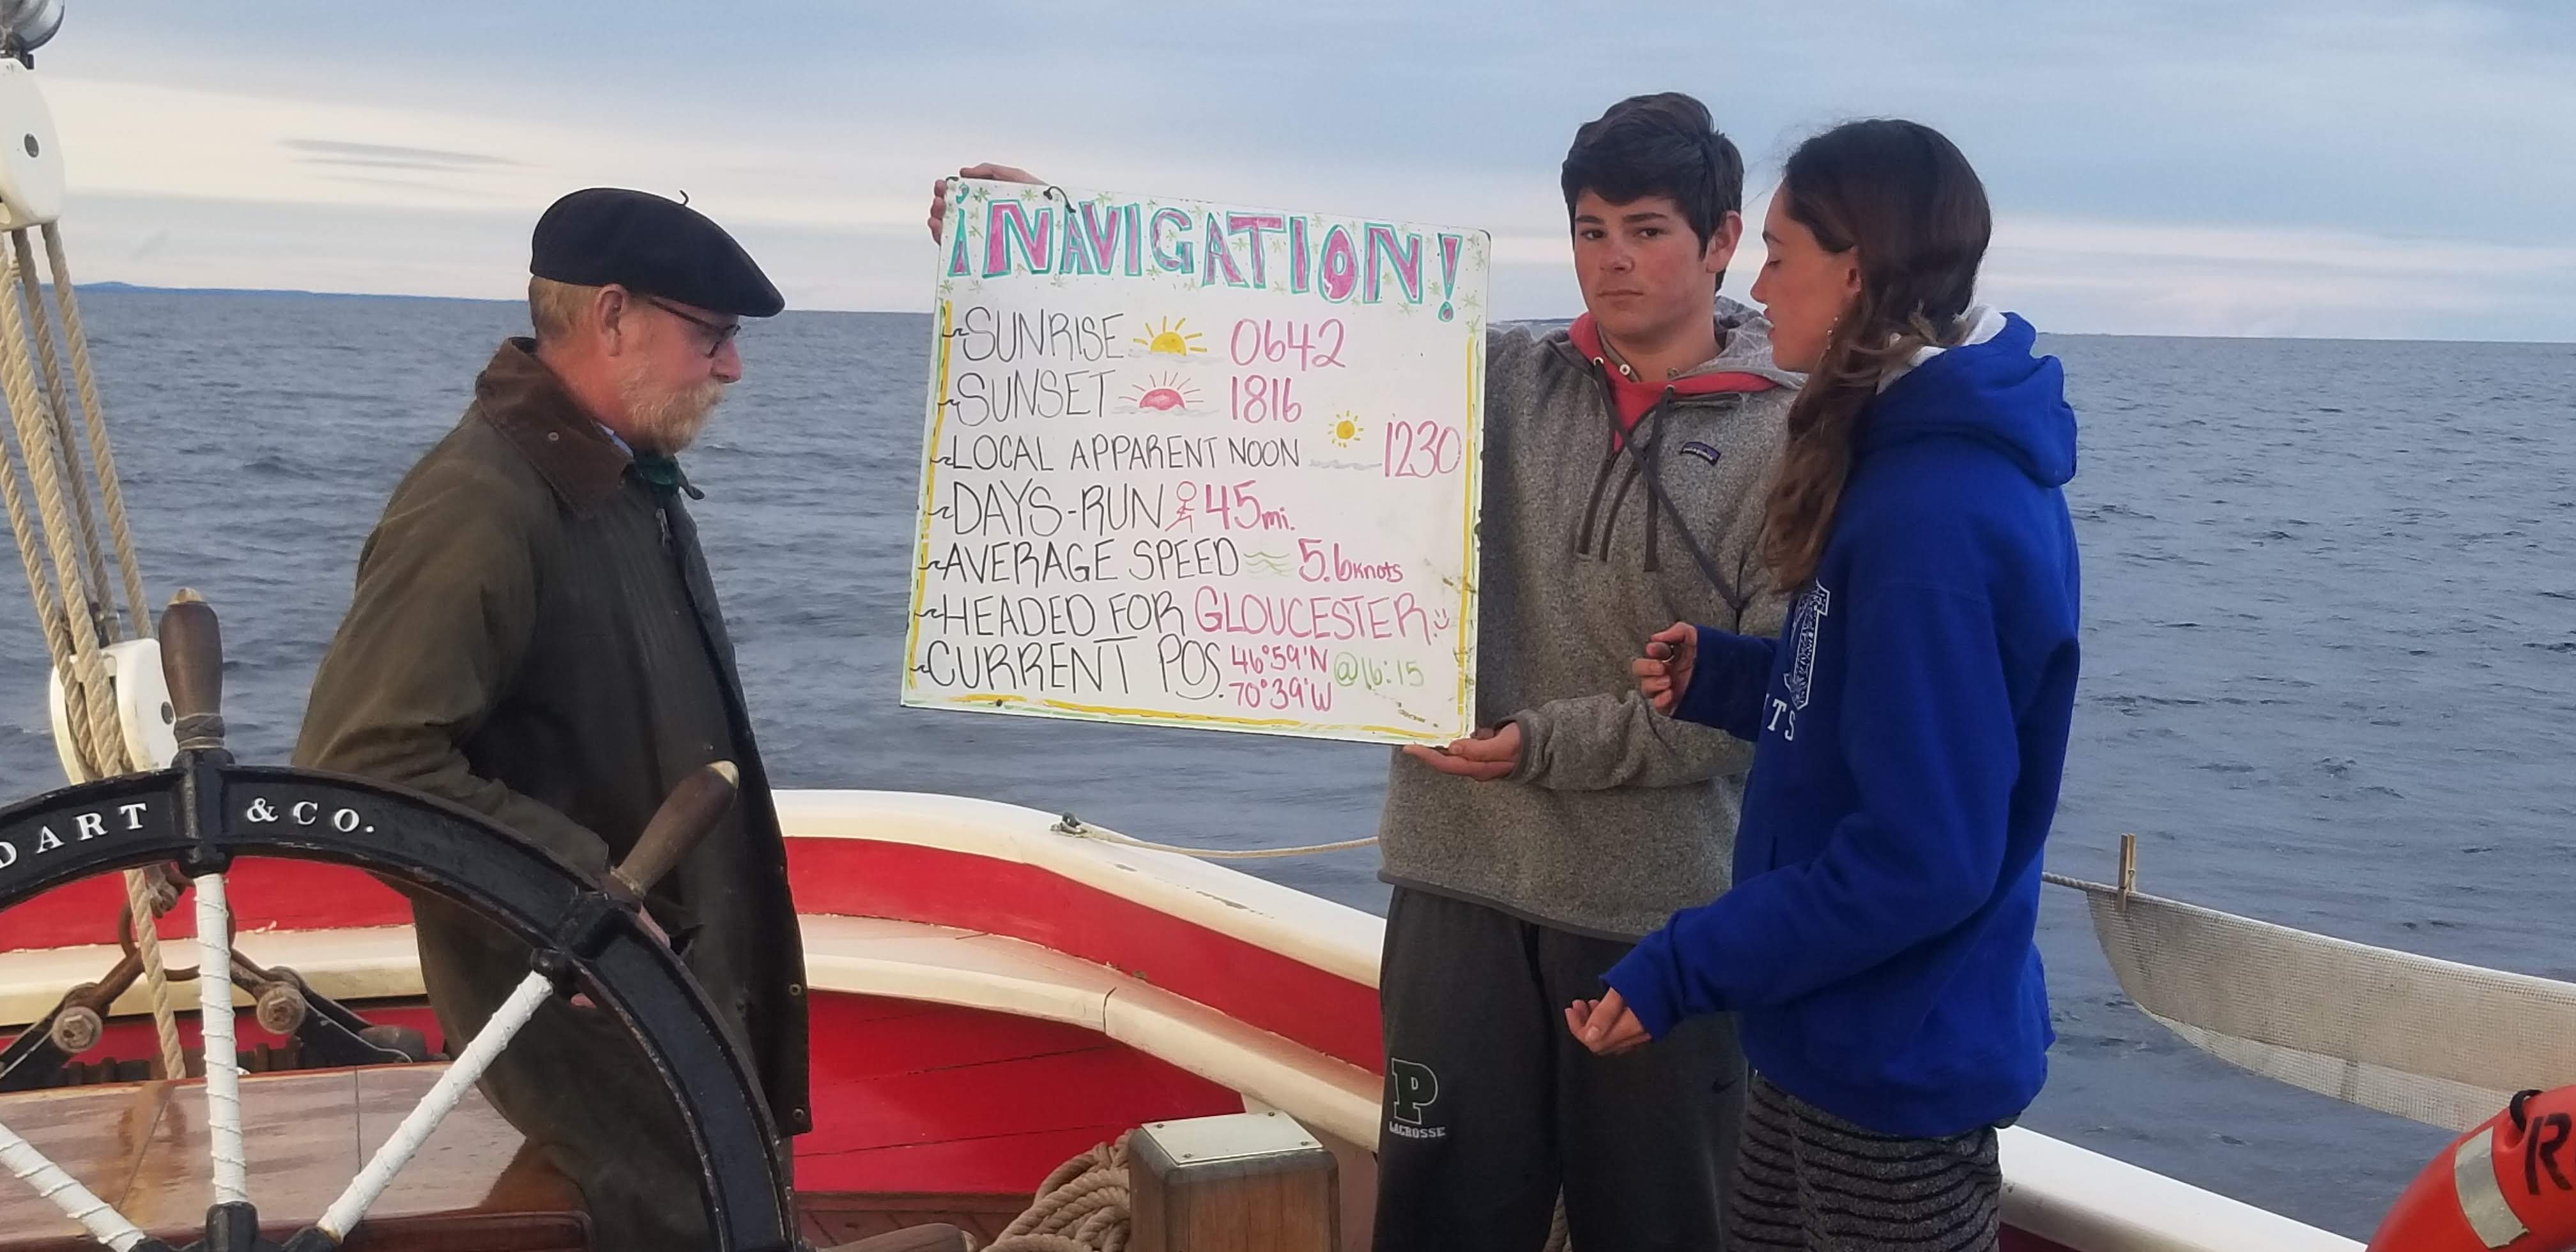 ¡NAVIGATION!
~SUNRISE 0642
~SUNSET 1816
~LOCAL APPARENT NOON 1230
~DAYS-RUN 45mi.
~AVERAGE SPEED 5.6knots
~HEADED FOR GLOUCESTER:)
~CURRENT POS. 46°59'N @16:15
70°39'W
patagonia
TS
DART &CO.
P
LACROSSE
R